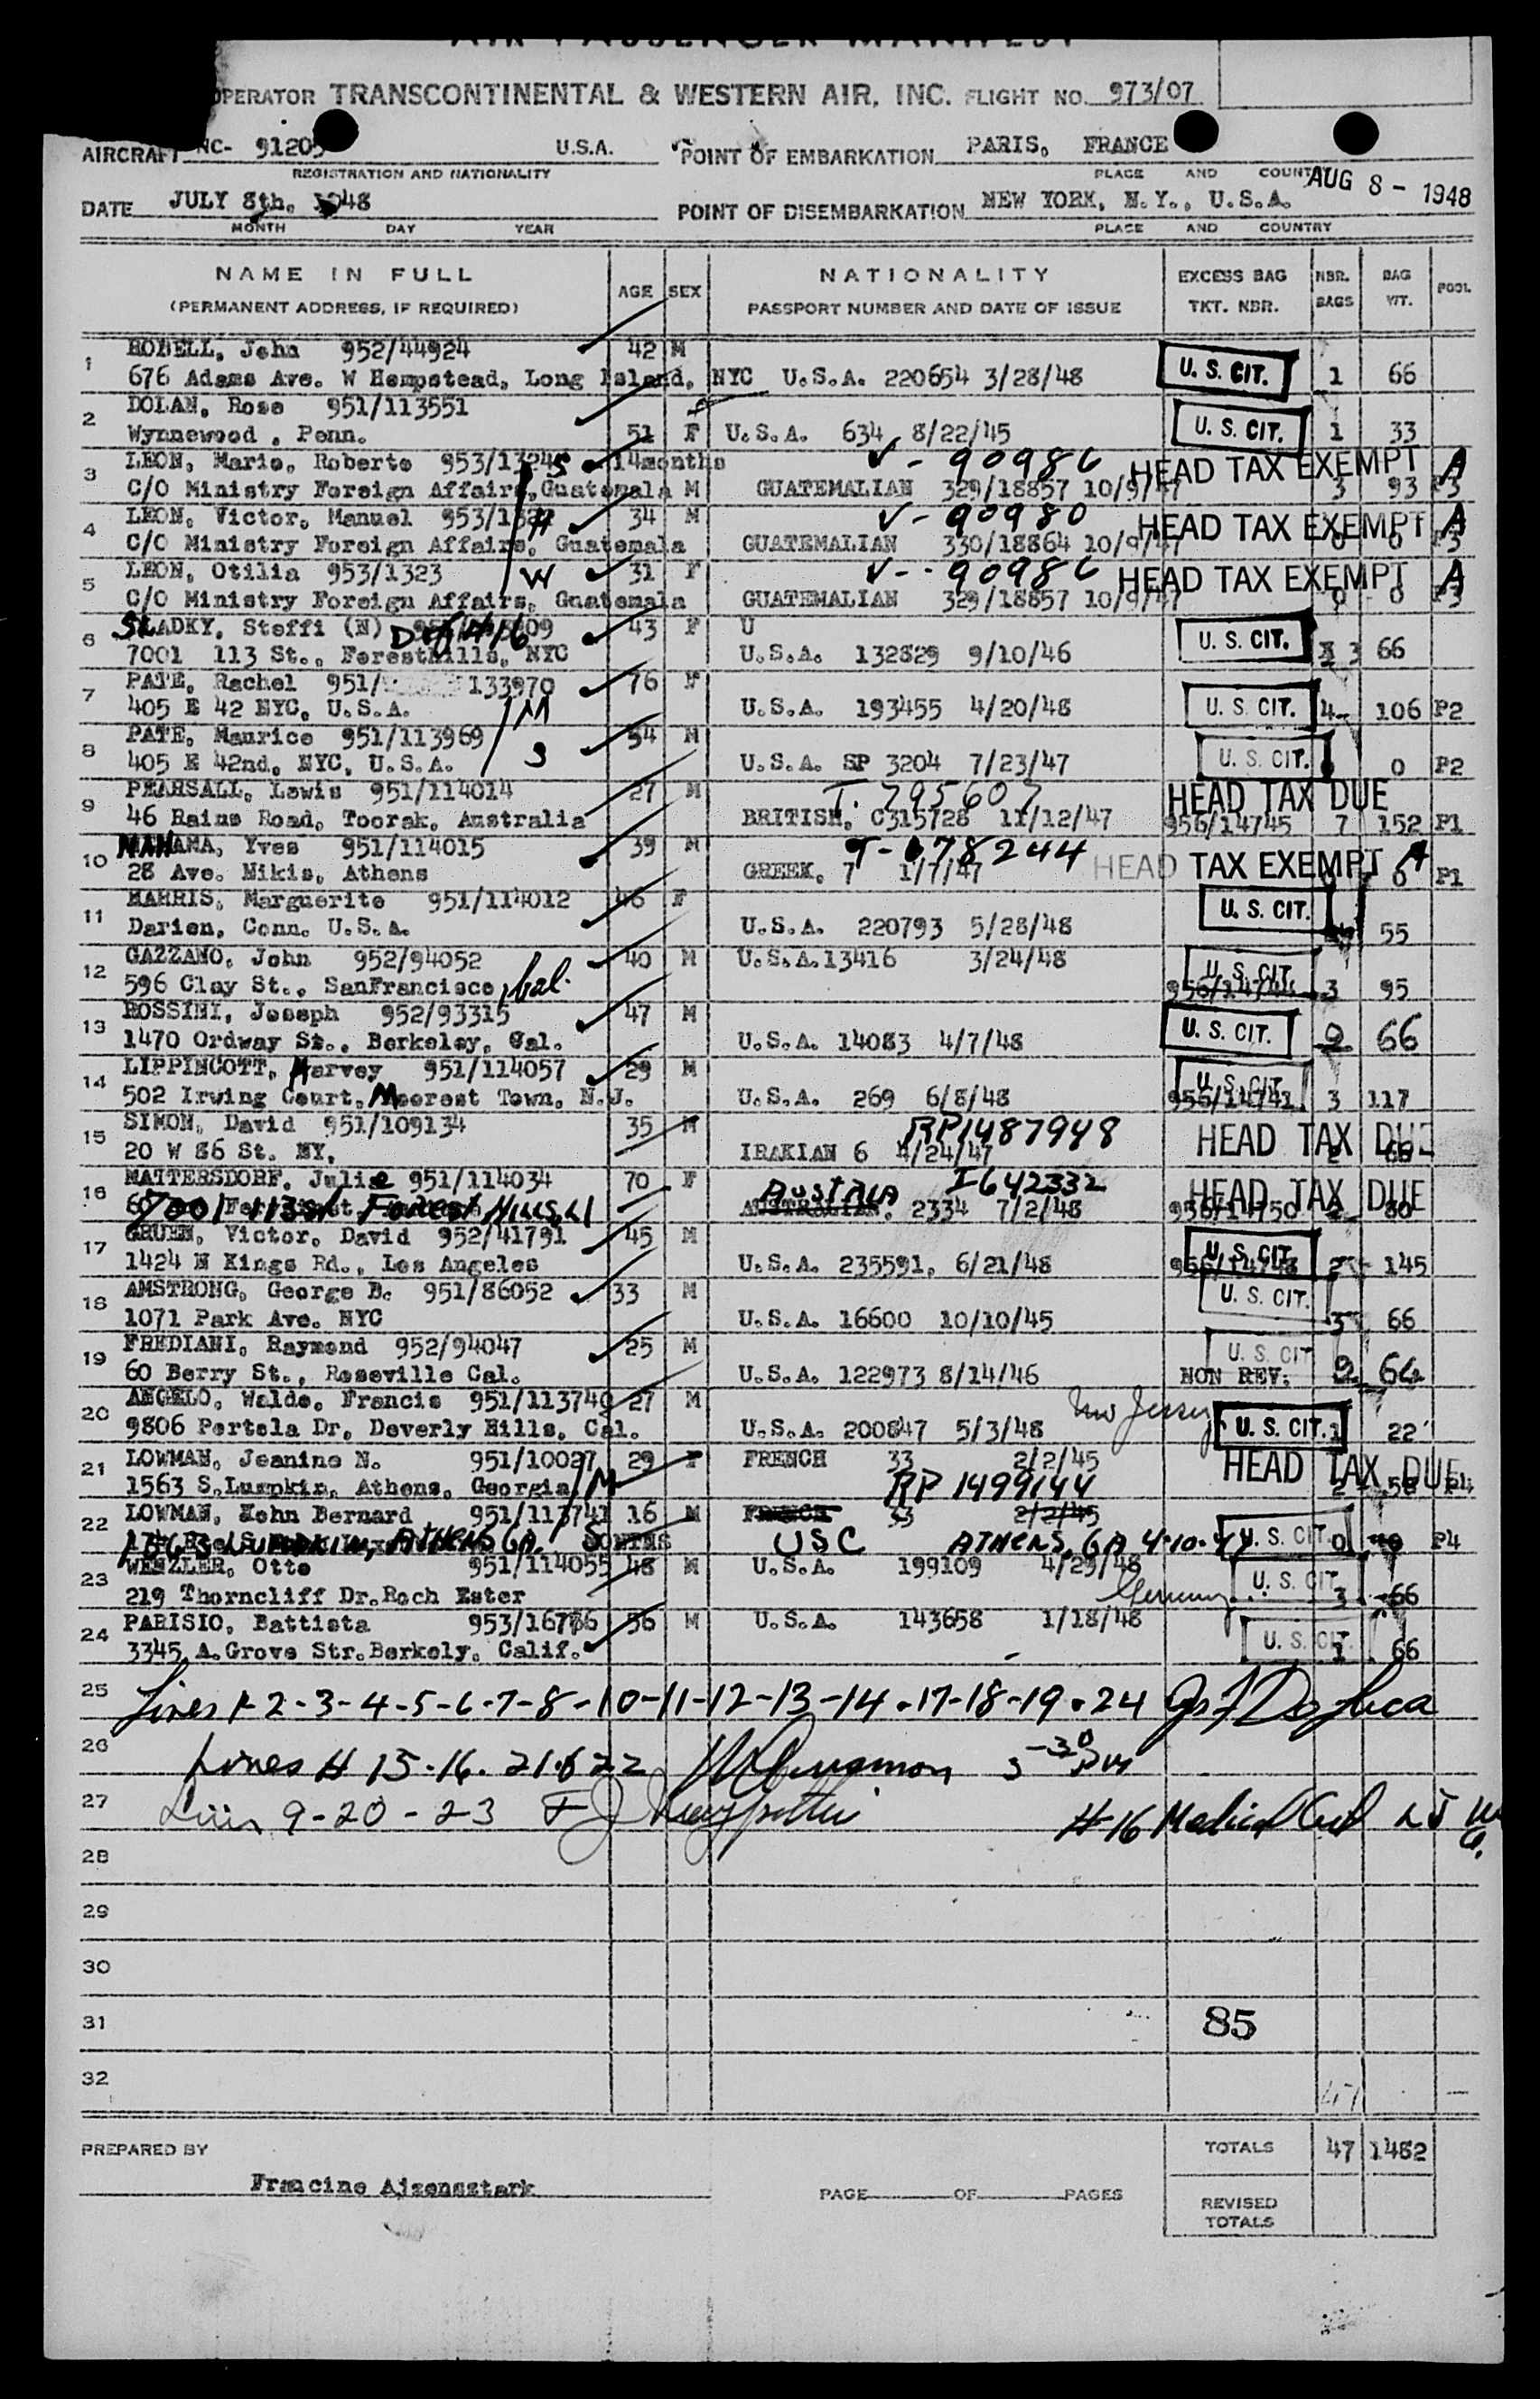 AIR PASSENGER MANIFEST
OPERATOR TRANSCONTINENTAL & WESTERN AIR, INC. FLIGHT NO. 973/07
AIRCRAFT NC- 91205 U.S.A. POINT OF EMBARKATION PARIS, FRANCE
REGISTRATION AND NATIONALITY PLACE AND COUNTRY
AUG 8 - 1948
DATE JULY 8th, 1948 POINT OF DISEMBARKATION NEW YORK, N.Y., U.S.A.
MONTH DAY YEAR PLACE AND COUNTRY
NAME IN FULL AGE SEX NATIONALITY EXCESS BAG NBR. BAG POOL
(PERMANENT ADDRESS, IF REQUIRED) PASSPORT NUMBER AND DATE OF ISSUE TKT. NBR. BAGS WT.
1 John 952/44924 42 M
676 Adams Ave. W Hempstead, Long Island, NYC U.S.A. 220654 3/28/48 U. S. CIT. 1 66
2 DOLAN, Rose 951/113551
Wynnewood , Penn. 51 F U.S.A. 634 8/22/45 U. S. CIT. 1 33
3 LEON, Mario, Roberto 953/1324 S 14months V - 90986 HEAD TAX EXEMPT A
C/O Ministry Foreign Affairs, Guatemala M GUATEMALIAN 329/18857 10/9/47 3 93 P3
4 LEON, Victor, Manuel 953/132 H 34 M V - 90980 HEAD TAX EXEMPT A
C/O Ministry Foreign Affairs, Guatemala GUATEMALIAN 330/18864 10/9/47 0 0 P3
5 LEON, Otilia 953/1323 W 31 F V - 90986 HEAD TAX EXEMPT A
C/O Ministry Foreign Affairs, Guatemala GUATEMALIAN 329/18857 10/9/47 0 0 P3
6 SLADKY, Steffi (N) 43 F U
7001 113 St., ForestHills, NYC U.S.A. 132829 9/10/46 U. S. CIT. 3 66
7 PATE, Rachel 951/ 133970 76 F
405 E 42 NYC, U.S.A. M U.S.A. 193455 4/20/48 U. S. CIT. 4 106 P2
8 PATE, Maurice 951/113969 54 M
405 E 42nd, NYC, U.S.A. S U.S.A. SP 3204 7/23/47 U. S. CIT. 0 P2
9 PEARSALL, Lewis 951/114014 27 M T. 795607 HEAD TAX DUE
46 Rains Road, Toorak, Australia BRITISH, C315728 11/12/47 956/14745 7 152 P1
10 Yves 951/114015 39 M T-678244 HEAD TAX EXEMPT A
28 Ave. Nikis, Athens GREEK, 7 1/7/47 0 P1
11 HARRIS, Marguerite 951/114012 46 F
Darien, Conn. U.S.A. U.S.A. 220793 5/28/48 U. S. CIT. 55
12 GAZZANO, John 952/94052 40 M U.S.A.13416 3/24/48
596 Clay St., SanFrancisco, Cal. U. S. CIT. 3 95
13 ROSSINI, Joseph 952/93315 47 M
1470 Ordway St., Berkeley, Cal. U.S.A. 14083 4/7/48 U. S. CIT. 2 66
14 LIPPINCOTT, Harvey 951/114057 29 M
502 Irwing Court, Moorest Town, N.J. U.S.A. 269 6/8/48 U. S. CIT. 956/14741 3 117
15 SIMON, David 951/109134 35 M RP1487948
20 W 86 St. NY. IRAKIAN 6 4/24/47 HEAD TAX DUE
16 MATTERSDORF, Julie 951/114034 70 F AUSTRIA I642332
7001 113 St Forest Hills, LI AUSTRALIAN, 2334 7/2/48 HEAD TAX DUE 956/14750 2 80
17 GRUEN, Victor, David 952/41791 45 M
1424 N Kings Rd., Los Angeles U.S.A. 235591, 6/21/48 U. S. CIT. 2 145
18 AMSTRONG, George B. 951/86052 33 M
1071 Park Ave. NYC U.S.A. 16600 10/10/45 U. S. CIT. 3 66
19 FREDIANI, Raymond 952/94047 25 M
60 Berry St., Roseville Cal. U.S.A. 122973 8/14/46 U. S. CIT. NON REV. 2 64
20 ANGELO, Waldo, Francis 951/113740 27 M New Jersey
9806 Portola Dr, Deverly Hills, Cal. U.S.A. 200847 5/3/48 U. S. CIT. 1 22
21 LOWMAN, Jeanine N. 951/10027 29 F FRENCH 33 2/2/45
1563 S.Lumpkin, Athens, Georgia M RP 1499144 HEAD TAX DUE 2 58 P4
22 LOWMAN, John Bernard 951/113741 16 M FRENCH 33 2/2/45
1563 S LUMPKIN, ATHENS GA. S MONTHS USC ATHENS, GA U. S. CIT. 0 0 P4
23 WENZLER, Otto 951/114055 48 M U.S.A. 199109 4/29/48
219 Thorncliff Dr.Roch Ester Germany U. S. CIT. 3 66
24 PARISIO, Battista 953/16776 56 M U.S.A. 143658 1/18/48
3345 A.Grove Str.Berkely, Calif. U. S. CIT. 1 66
25 Lines 1-2-3-4-5-6-7-8-10-11-12-13-14-17-18-19-24
26 Lines # 15-16. 21. & 22 5-30 PM
27 Lines 9-20-23 #16 Medical Cert
28
29
30
31 85
32 47
PREPARED BY TOTALS 47 1482
Francine Ajzensztark
PAGE OF PAGES REVISED
TOTALS